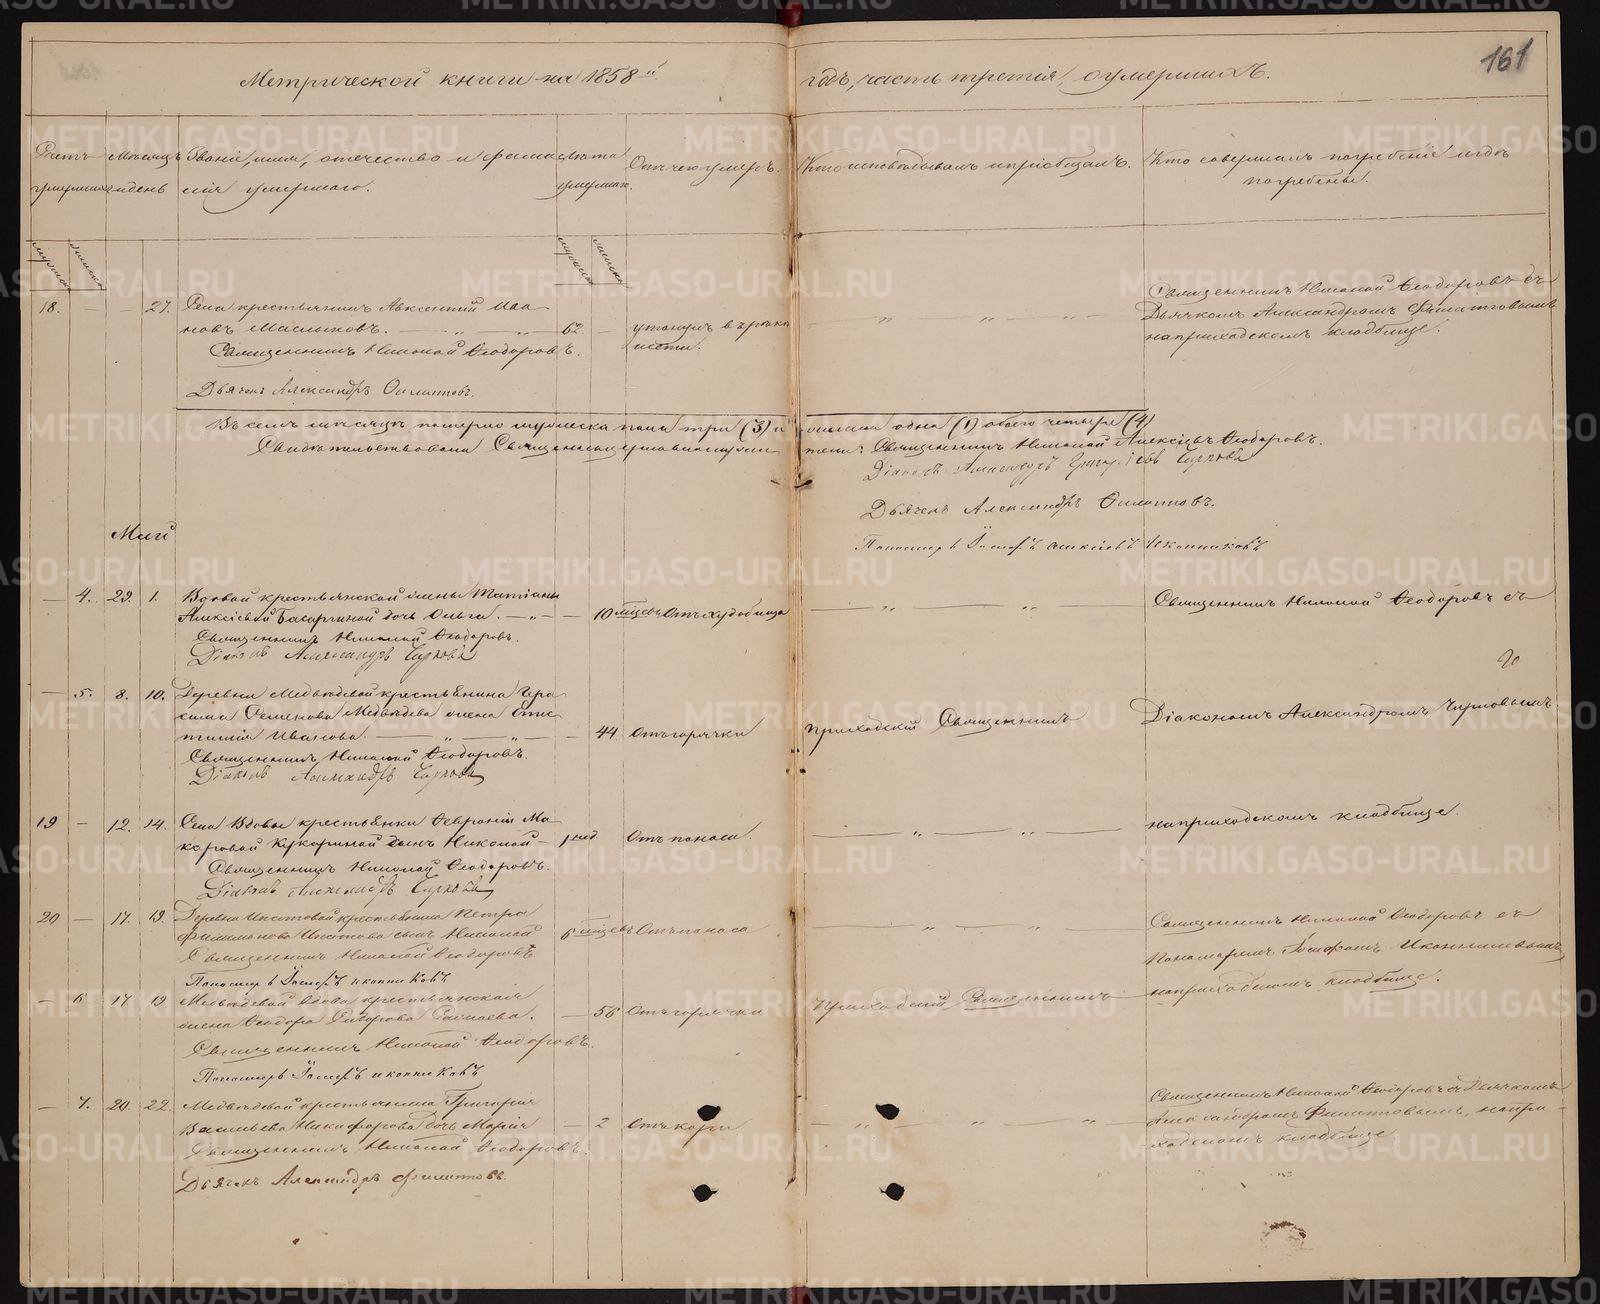 161
Метрической книги на 1858й годъ, часть третія, о умершихъ.
Счетъ умершихъ
Мѣсяцъ и день
Званіе, имя, отечество и фамилія умершаго.
Лѣта умершаго.
Отъ чего умеръ.
Кто исповѣдывалъ и пріобщалъ.
Кто совершалъ погребеніе и гдѣ погребены.
мужеска
женска
мужеска
женска
18. — — 27. Села крестьянинъ Авксентій Ива
новъ Масльковъ. — „ — „ — 62. — утонулъ в рѣки
Священникъ Николай Ѳеодоровъ.
Дьячекъ Александръ Филиповъ.
Священникъ Николай Ѳеодоровъ съ
Дьячкомъ Александромъ Филитовымъ
на приходскомъ кладбище.
Въ семъ мѣсяцѣ померло мужеска пола три (3) и женска одна (1) обоего четыре (4)
Свидѣтельствовали Священноцерковнослужители: Священникъ Николай Алексѣевъ Ѳеодоровъ.
Діаконъ Александръ Григорьевъ
Дьячекъ Александръ Филитовъ.
Пономарь Іосифъ Алексѣевъ Иконниковъ
Май
— 4. 29. 1. Вдовой крестьянской жены Татіаны
Алексіевой Басаргиной дочь Ольга. — „ — — 10 мѣсяцевъ Отъ худобища
Священникъ Николай Ѳеодоровъ.
Діаконъ Александръ
Священникъ Николай Ѳеодоровъ съ
— 5. 8. 10. Деревни Медвѣдевой крестьянина Гера
сима Семенова Медвѣдева жена
Иванова. — „ — „ — — 44 Отъ горячки
Приходскій Священникъ
Діакономъ Александромъ
Священникъ Николай Ѳеодоровъ.
Діаконъ Александръ
19 — 12. 14. Села Вдовы крестьянки Ѳевроніи Ма
каровой Кукариной сынъ Николай — 1 нед Отъ поноса.
на приходскомъ кладбище.
Священникъ Николай Ѳеодоровъ.
Діаконъ Александръ
20 — 17. 19. Деревни Ипатовой крестьянина Петра
Филимонова Ипатова сынъ Николай 6 мѣсяцевъ Отъ поноса
Священникъ Николай Ѳеодоровъ
Пономарь Іосифъ Иконниковъ
Священникъ Николай Ѳеодоровъ съ
Пономаремъ Іосифомъ Иконниковымъ
на приходскомъ кладбище.
— 6 17 19 Медвѣдевой Вдова крестьянская
жена Ѳеодора Сидорова — 56 Отъ горячки
Приходскій Священникъ
Священникъ Николай Ѳеодоровъ.
Пономарь Іосифъ Иконниковъ
— 7. 20 22. Медвѣдевой крестьянина Григорія
Васильева Никифорова дочь Марія — 2 Отъ кори
Священникъ Николай Ѳеодоровъ.
Дьячекъ Александръ Филитовъ.
Священникъ Николай Ѳеодоровъ съ Дьячкомъ
Александромъ Филитовымъ, на при
ходскомъ кладбище
METRIKI.GASO-URAL.RU